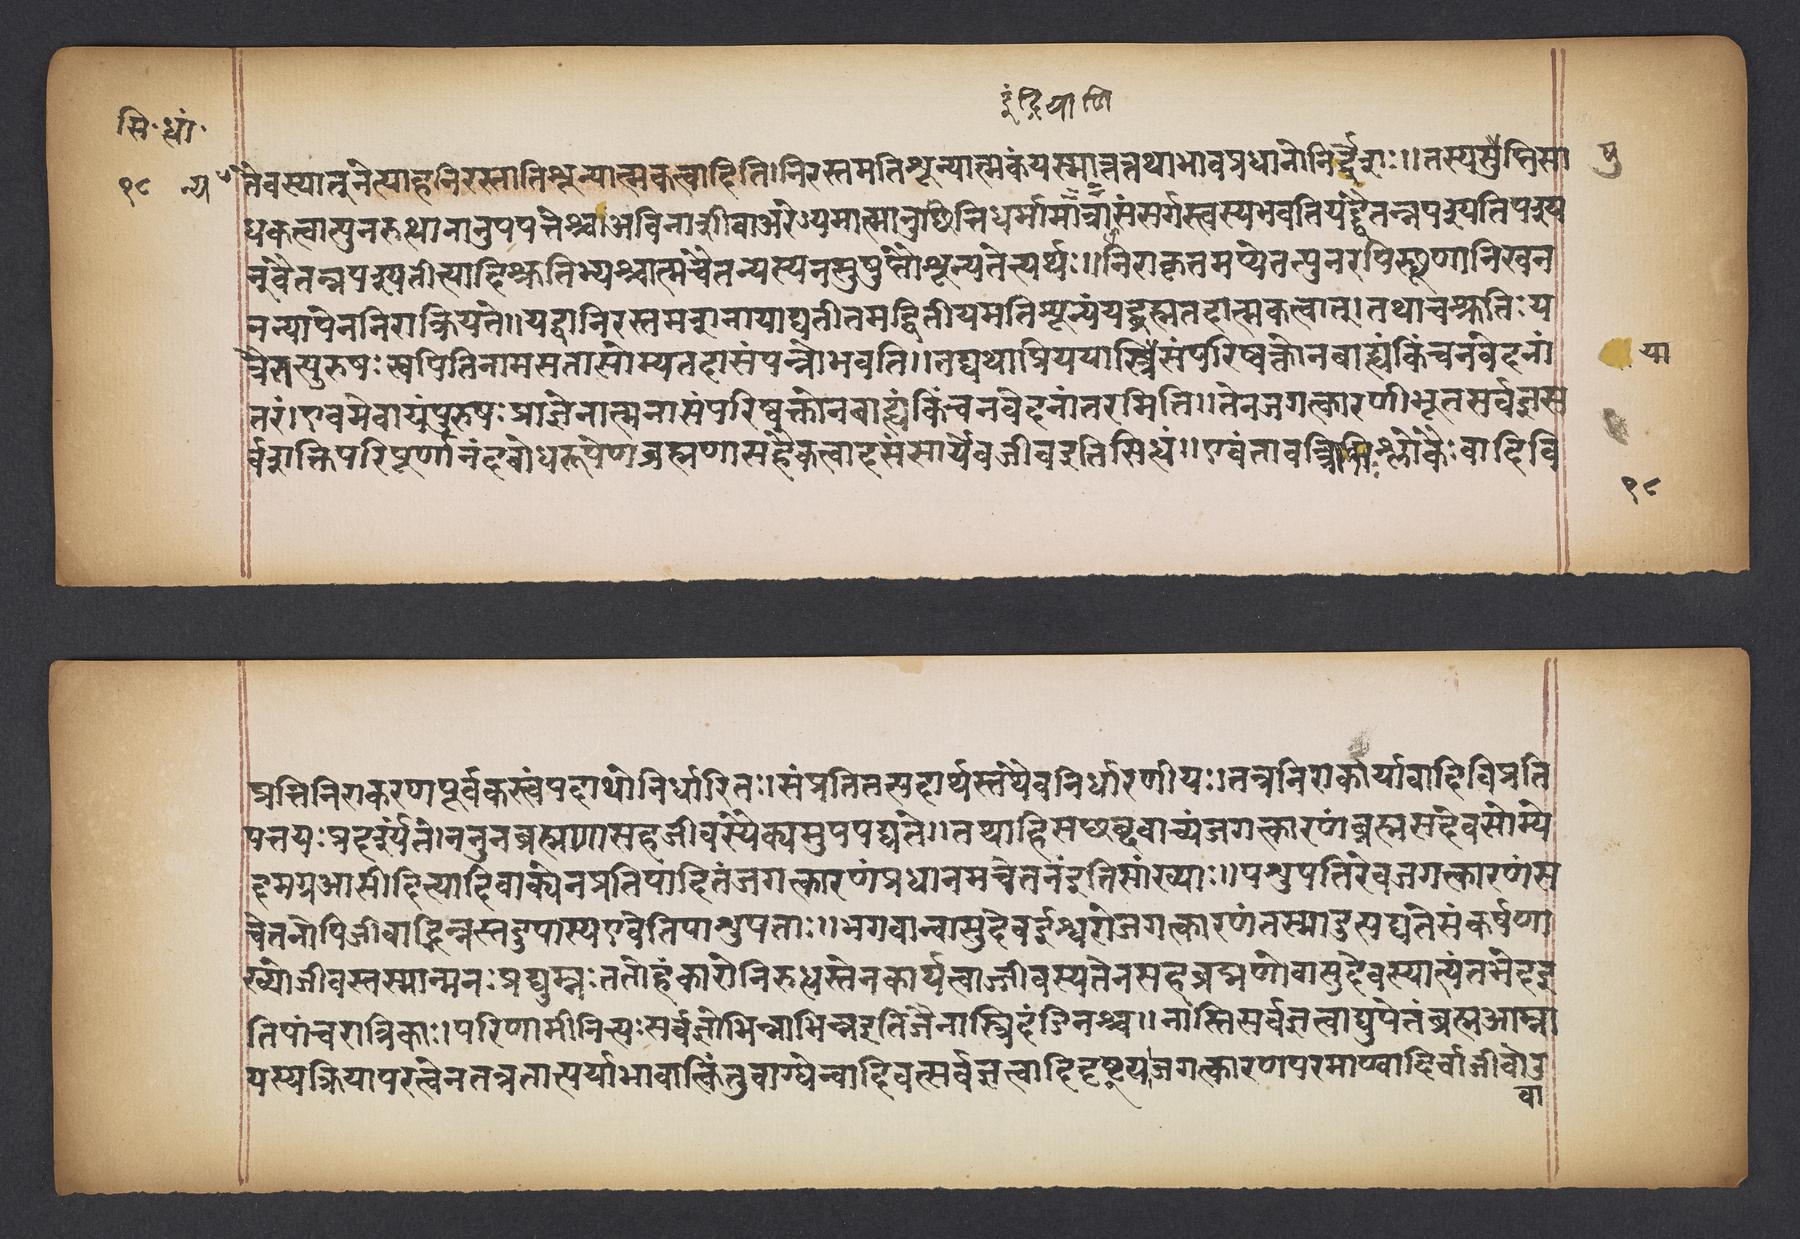 इंद्रियाणि
सि॰ध्धां॰
१८
न्य
तेवस्यातुनेत्याहनिरस्तातिशून्यात्मकत्वादिति।निरस्तमतिशून्यात्मकंयस्मात्तत्तथाभावप्रधानोनिर्द्देशः॥तस्यसुप्तिसा
पु
धकत्वात्पुनरुत्थानानुपपत्तेश्चअविनाशीवाअरेऽयमात्मानुछित्तिधर्मामात्रासंसर्गस्त्वस्यभवतियद्वैतन्नपश्यतिपश्य
न्वैतन्नपश्यतीत्यादिश्रुतिभ्यश्चात्मचैतन्यस्यनसुषुप्तौशून्यतेत्यर्थः॥निराकृतमप्येतत्पुनरपिस्थूणानिखन
नन्यायेननिराक्रियते॥यद्वानिरस्तमशनायाद्यतीतमद्वितीयमतिशून्यंयद्ब्रह्मतदात्मकत्वात्।तथाचश्रुतिःय
त्रैतत्पुरुषःस्वपितिनामसतासोम्यतदासंपन्नोभवति॥तद्यथाप्रिययास्त्रिसंपरिष्वक्तोनबाह्यंकिंचनवेदनां
या
तरं।एवमेवायंपुरुषःप्राज्ञेनात्मनासंपरिष्वक्तोनबाह्यंकिंचनवेदनांतरमिति॥तेनजगत्कारणीभूतसर्वज्ञस
र्वशक्तिपरिपूर्णानंदबोधरूपेणब्रह्मणासहैकत्वादसंसार्येवजीवइतिसिध्धं॥एवंतावत्त्रिभिःश्लोकैःवादिवि
१८
प्रत्तिनिराकरणपूर्वकस्त्वंपदार्थोनिर्धारितः।संप्रतितत्पदार्थस्तथैवनिर्धारणीयः।तत्रनिराकार्यावादिविप्रति
पत्तयःप्रदर्श्यंते।ननुनब्रह्मणासहजीवस्यैक्यमुपपद्यते॥तथाहिसछब्दवाच्यंजगत्कारणंब्रह्मसदेवसोम्ये
दमग्रआसीदित्यादिवाक्येनप्रतिपादितंजगत्कारणंप्रधानमचेतनंइतिसांख्याः॥पशुपतिरेवजगत्कारणंस
चेतनोपिजीवाद्भिन्नस्तदुपास्यएवेतिपाशुपताः॥भगवान्वासुदेवईश्वरोजगत्कारणंतस्मादुत्पद्यतेसंकर्षणा
ख्योजीवस्तस्मान्मनःप्रद्युम्नःततोहंकारोनिरुध्धस्तेनकार्यत्वाज्जीवस्यतेनसहब्रह्मणोवासुदेवस्यात्यंतभेदइ
तिपांचरात्रिकाः।परिणामीनित्यःसर्वज्ञोभिन्नाभिन्नइतिजैनास्त्रिदंडिनश्च॥नास्तिसर्वज्ञत्वाद्युपेतंब्रह्मआम्ना
यस्यक्रियापरत्वेनतत्रतात्पर्याभावात्किंतुवाग्घेन्वादिवत्सर्वज्ञत्वादिदृष्ट्यजगत्कारणपरमाण्वादिर्वाजीवोउ
वा